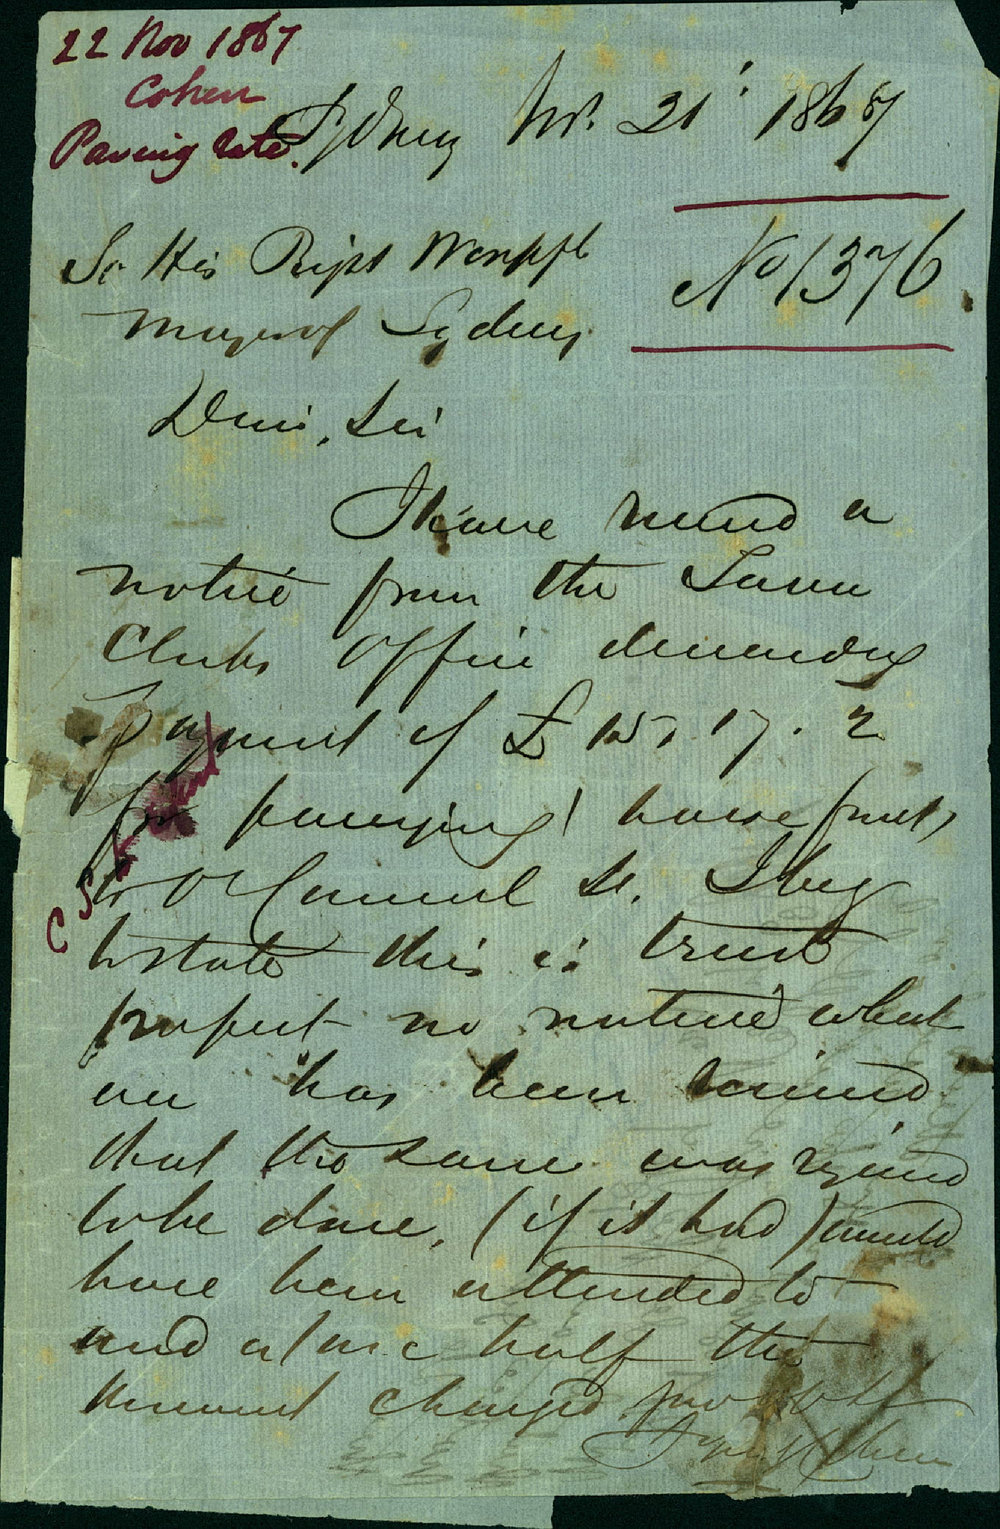 22 Nov 1867
Cohen
Paving rate.
Sydney Nov. 21 1867
No 1376
To His Right Worshpfl
Mayor of Sydney
Dear Sir
I have received a
notice from the Town
Clerks Office demanding
payment of £15.17.2
for paveying house fronts
in O'Connell St. I beg
to state this is trust
propert no noticed what
ever has been received
that the same was required
to be done, (if it had) would
have been attended to
and at one half the
amount charged